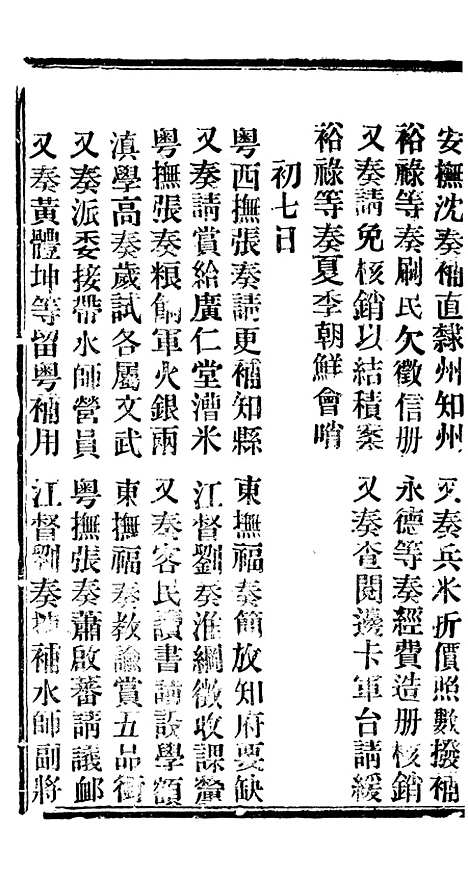 安撫沈奏補直隸州知州　又奏兵米折價照數撥補
裕祿等奏刷民欠徵信册　永德等奏經費造册核銷
又奏請免核銷以結積案　又奏查閱邊卡軍台請緩
裕祿等奏夏季朝鮮會哨
初七日
粵西撫張奏請更補知縣　東撫福奏簡放知府要缺
又奏請賞給廣仁堂漕米　江督劉奏淮綱徵收課釐
粵撫張奏粮餉軍火銀兩　又奏客民讀書請設學額
滇學高奏歲試各屬文武　東撫福奏教諭賞五品銜
又奏派委接帶水師營員　粵撫張奏蕭啟蕃請議邮
又奏黃體坤等留粵補用　江督劉奏補水師副將